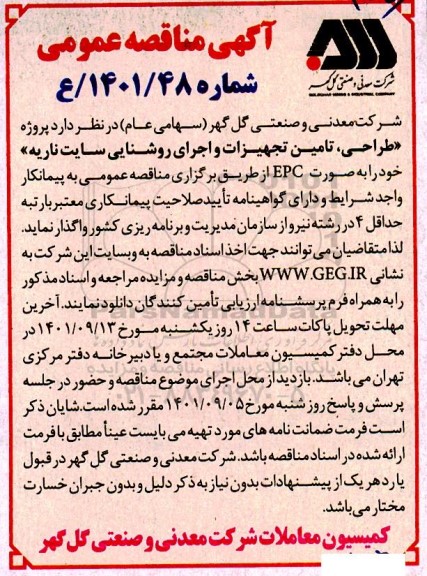 آگهی مناقصه عمومی
شماره ۱۴۰۱/۴۸/ع
شرکت معدنی و صنعتی گل گهر
شرکت معدنی و صنعتی گل گهر (سهامی عام) در نظر دارد پروژه
«طراحی، تامین تجهیزات و اجرای روشنایی سایت ناریه»
خود را به صورت EPC از طریق برگزاری مناقصه عمومی به پیمانکار
واجد شرایط و دارای گواهینامه تأیید صلاحیت پیمانکاری معتبر با رتبه
حداقل ۴ در رشته نیرو از سازمان مدیریت و برنامه ریزی کشور واگذار نماید.
لذا متقاضیان می توانند جهت اخذ اسناد مناقصه به وبسایت این شرکت به
نشانی WWW.GEG.IR بخش مناقصه و مزایده مراجعه و اسناد مذکور
را به همراه فرم پرسشنامه ارزیابی تأمین کنندگان دانلود نمایند. آخرین
مهلت تحویل پاکات ساعت ۱۴ روز یکشنبه مورخ ۱۴۰۱/۰۹/۱۳ در
محل دفتر کمیسیون معاملات مجتمع و یا دبیرخانه دفتر مرکزی
تهران می باشد. بازدید از محل اجرای موضوع مناقصه و حضور در جلسه
پرسش و پاسخ روز شنبه مورخ ۱۴۰۱/۰۹/۰۵ مقرر شده است. شایان ذکر
است فرمت ضمانت نامه های مورد تهیه می بایست عیناً مطابق با فرمت
ارائه شده در اسناد مناقصه باشد. شرکت معدنی و صنعتی گل گهر در قبول
یا رد هر یک از پیشنهادات بدون نیاز به ذکر دلیل و بدون جبران خسارت
مختار می باشد.
کمیسیون معاملات شرکت معدنی و صنعتی گل گهر